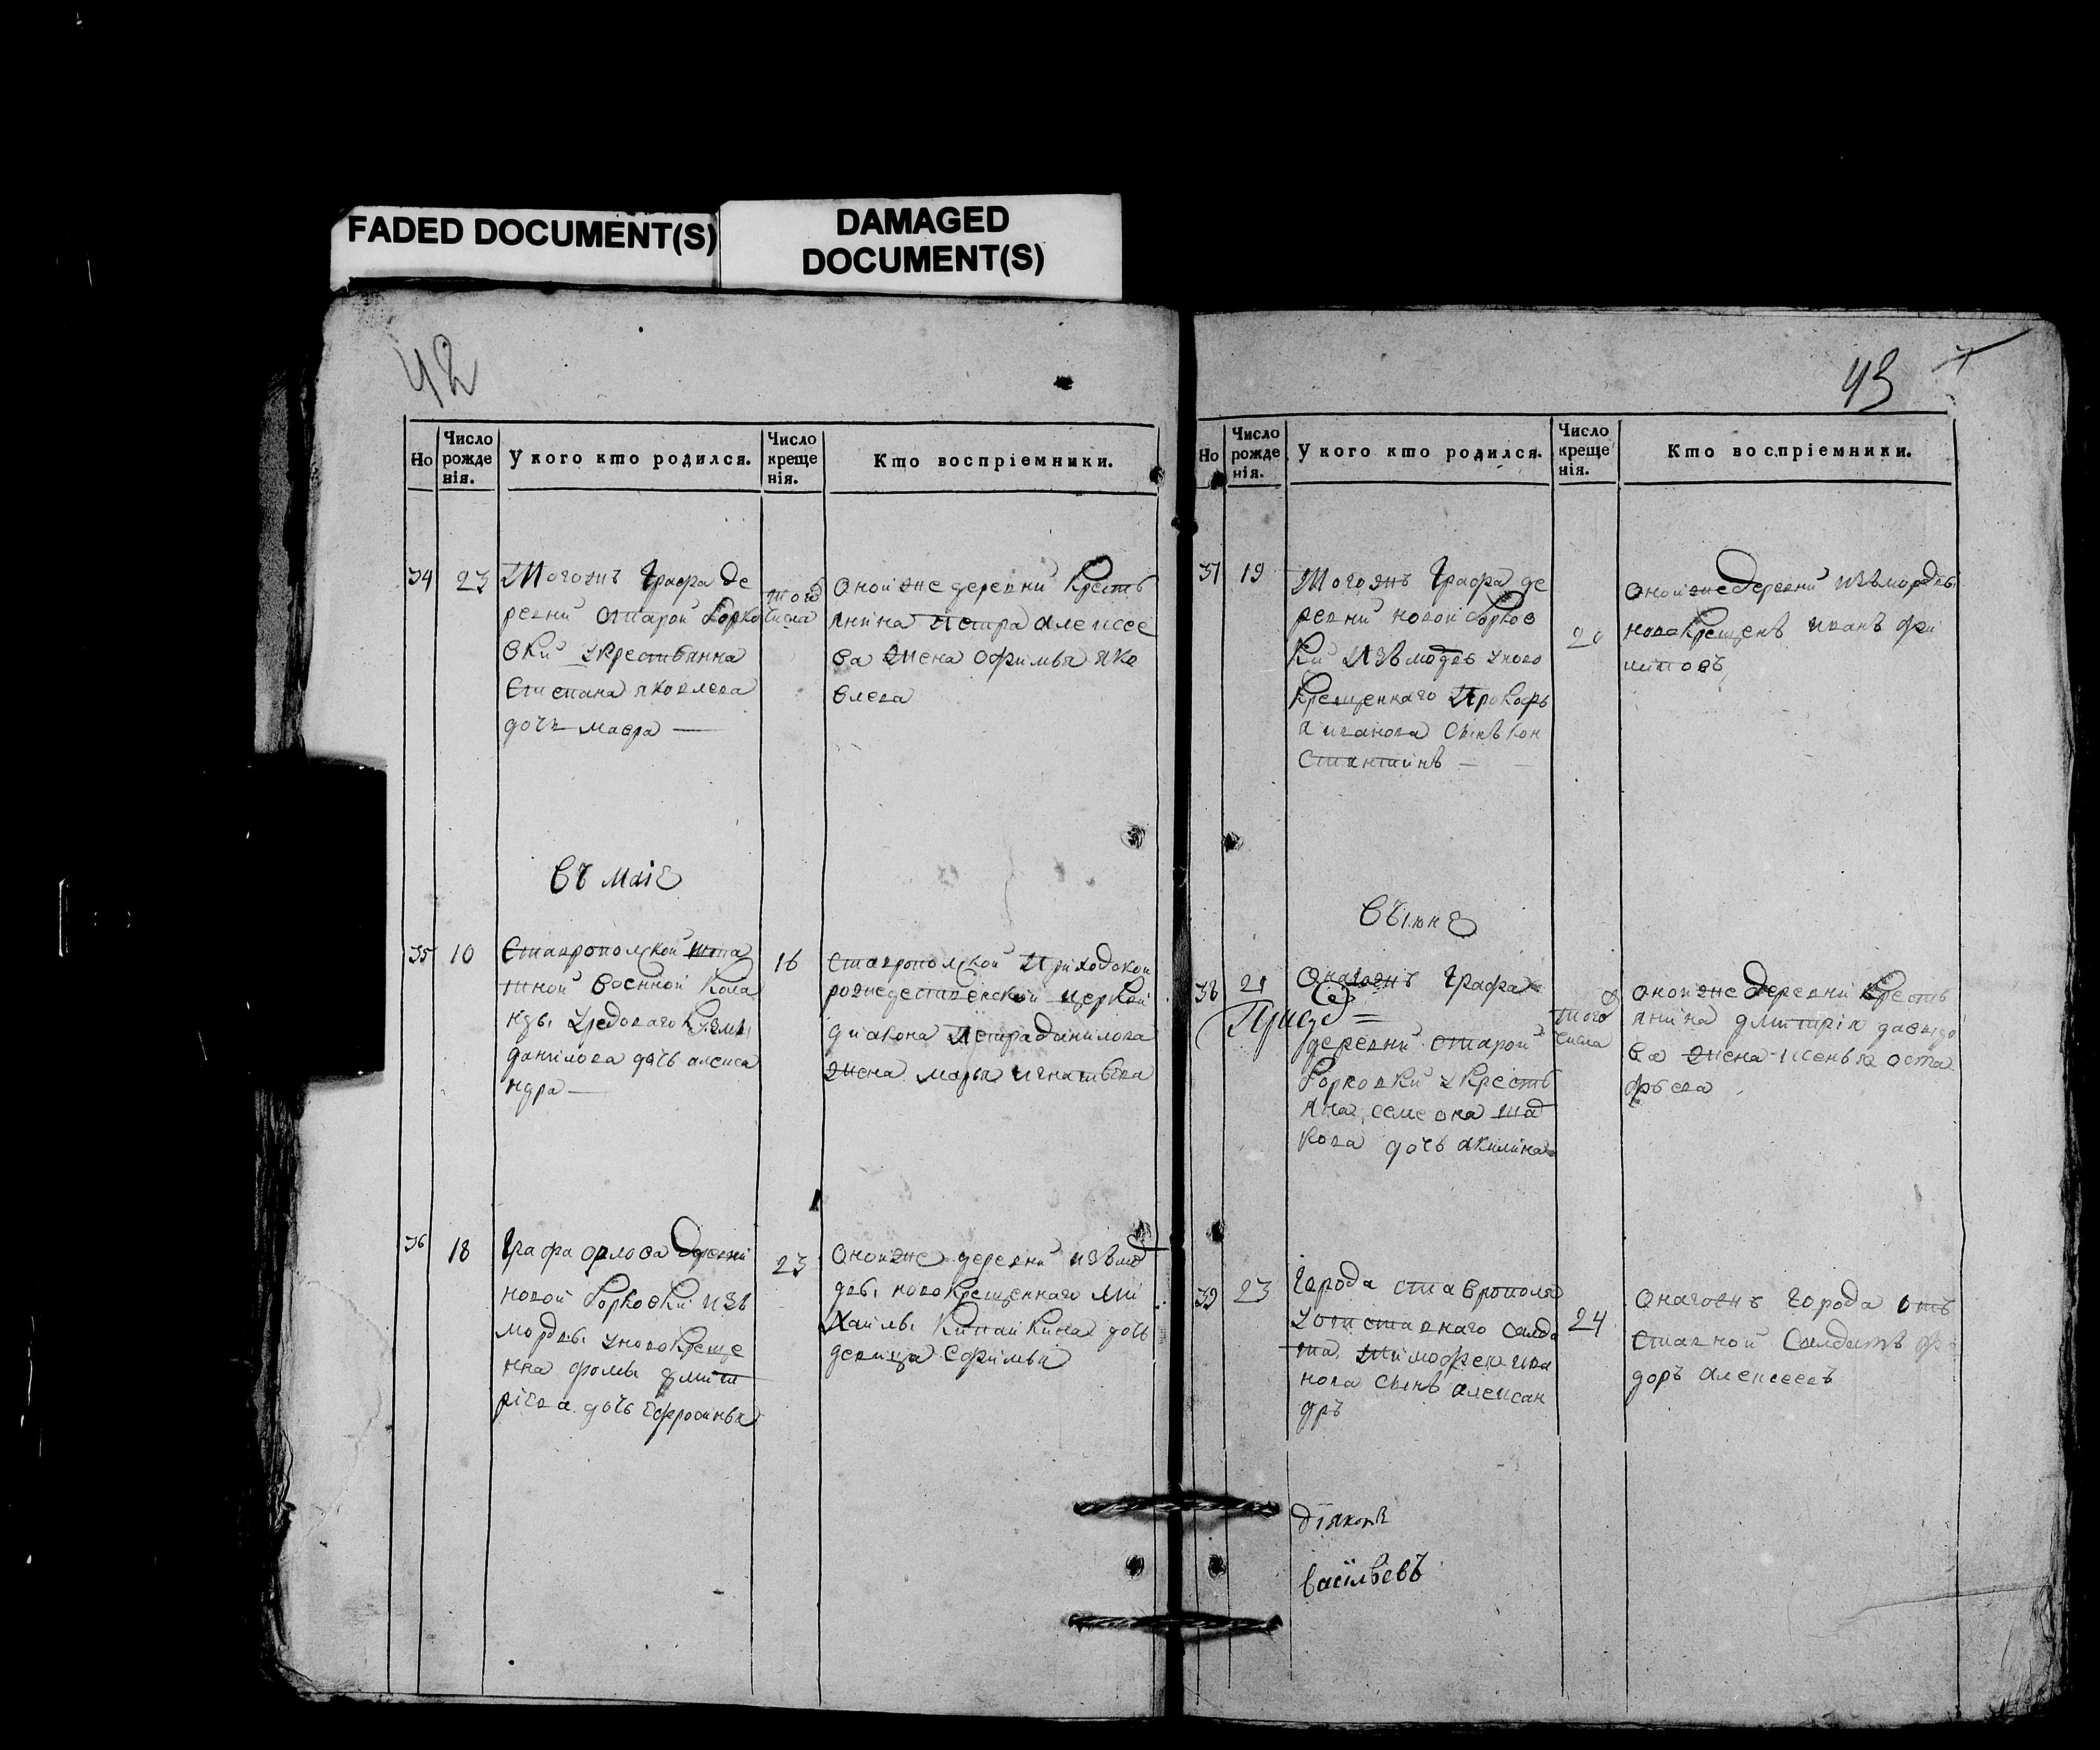 FADED DOCUMENT(S)
DAMAGED
DOCUMENT(S)
42
Но
Число рожде нія.
У кого кто родился.
Число креще нія.
Кто воспріемники.
34
23
Тогожъ Графа де
ревни Старой Борко
вки укрестьянина
Степана яковлева
дочь мавра —
того
числа
Оной же деревни Кресть
янина Петра алексее
ва жена Офимья яко
влева
въ маіе
35
10
Ставропольской шта
тной военной Кома
нды урядоваго Кузмы
данилова дочь алекса
ндра —
16
Ставропольской Приходской
рождественской церкви
диакона Петра данилова
жена марья игнатьева
36
18
Графа орлова деревни
новой Борковки изъ
мордвы уновокреще
нна фомы дмит
ріева дочь Ефросинья
23
Оной же деревни изъ мо
двы новокрещеннаго ми
хаилы Кипайкина дочь
девица Офимья
43
Но
Число рожде нія.
У кого кто родился.
Число креще нія.
Кто воспріемники.
37
19
Тогожъ Графа де
ревни новой Борков
ки Изъ модвы уново
крещеннаго Прокофь
а иванова сынъ Кон
стантинъ —
20
Оной же Деревни изъ мордвы
новокрещенъ иванъ фи
липовъ
Въ іюне
38
21
Онагожъ Графа
деревни старой
Борковки укресть
яна семеона
кова дочь акилина
того
числа
Оной же деревни Кресть
янина дмитрія давыдо
ва жена ксенья оста
фьева
39
23
Города ставрополя
уотставнаго салда
та Тимофея ива
нова сынъ алексан
дръ
24
Онагожъ города отъ
ставной Салдатъ фе
доръ алексеевъ
діяконъ
васильевъ